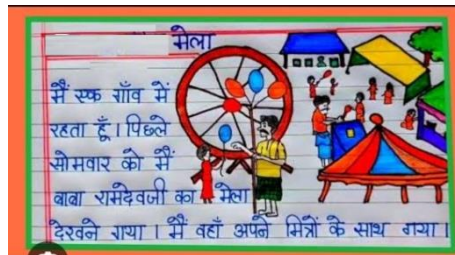 मेला
मैं एक गाँव में
रहता हूँ । पिछले
सोमवार को मैं
बाबा रामदेवजी का मेला
देखने गया । मैं वहाँ अपने मित्रों के साथ गया ।